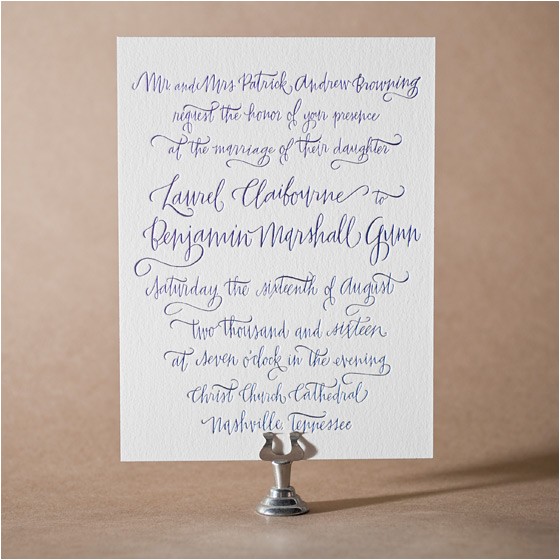 Mr. and Mrs Patrick Andrew Browning
request the honor of your presence
at the marriage of their daughter
Laurel Claibourne to
Benjamin Marshall Gunn
Saturday the sixteenth of August
two thousand and sixteen
at seven o'clock in the evening
Christ Church Cathedral
Nashville, Tennessee